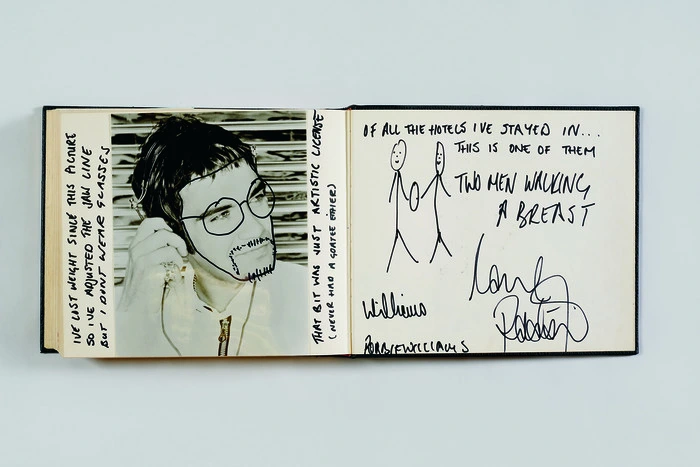 IVE LOST WEIGHT SINCE THIS PICTURE
SO IVE ADJUSTED THE JAW LINE
BUT I DONT WEAR GLASSES
THAT BIT WAS JUST ARTISTIC LICENSE
(NEVER HAD A GOATEE EITHER)
OF ALL THE HOTELS IVE STAYED IN...
THIS IS ONE OF THEM
TWO MEN WALKING
A BREAST
Williams
ROBBIE WILLIAMS